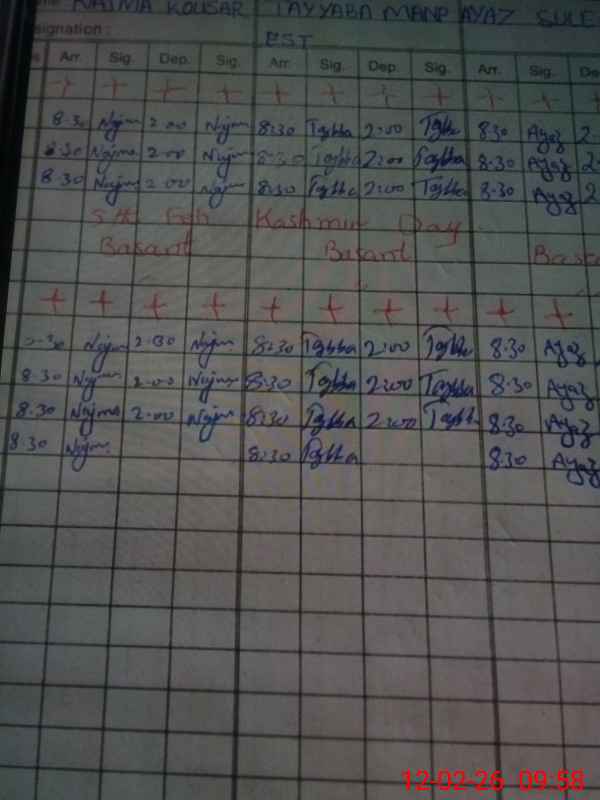 NAIMA KOUSAR TAYYABA MANR AYAZ SULE
signation : EST
Arr. Sig. Dep. Sig. Arr. Sig. Dep. Sig. Arr. Sig. De
+ + + + + + + + + +
8.30 Najma 2.00 Najm 8:30 Tayba 2:00 Tayba 8.30 Ayaz 2
8.30 Najma 2.00 Najm 8:30 Tayba 2:00 Tayba 8.30 Ayaz 2
8.30 Najma 2.00 Najm 8:30 Tayba 2:00 Tayba 8.30 Ayaz 2
5th Feb Kashmir Day
Basant Basant Basa
+ + + + + + + + + +
30 Najm 2.00 Najm 8:30 Tayba 2:00 Tayba 8.30 Ayaz
8.30 Najm 2.00 Najm 8:30 Tayba 2:00 Tayba 8.30 Ayaz
8.30 Najma 2.00 Najm 8:30 Tayba 2:00 Tayba 8.30 Ayaz
8.30 Najm 8:30 Tayba 8.30 Ayaz
12-02-26 09:58